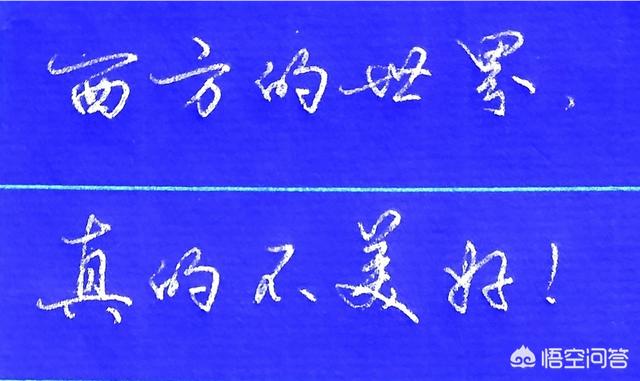 西方的世界，
真的不美好！
悟空问答